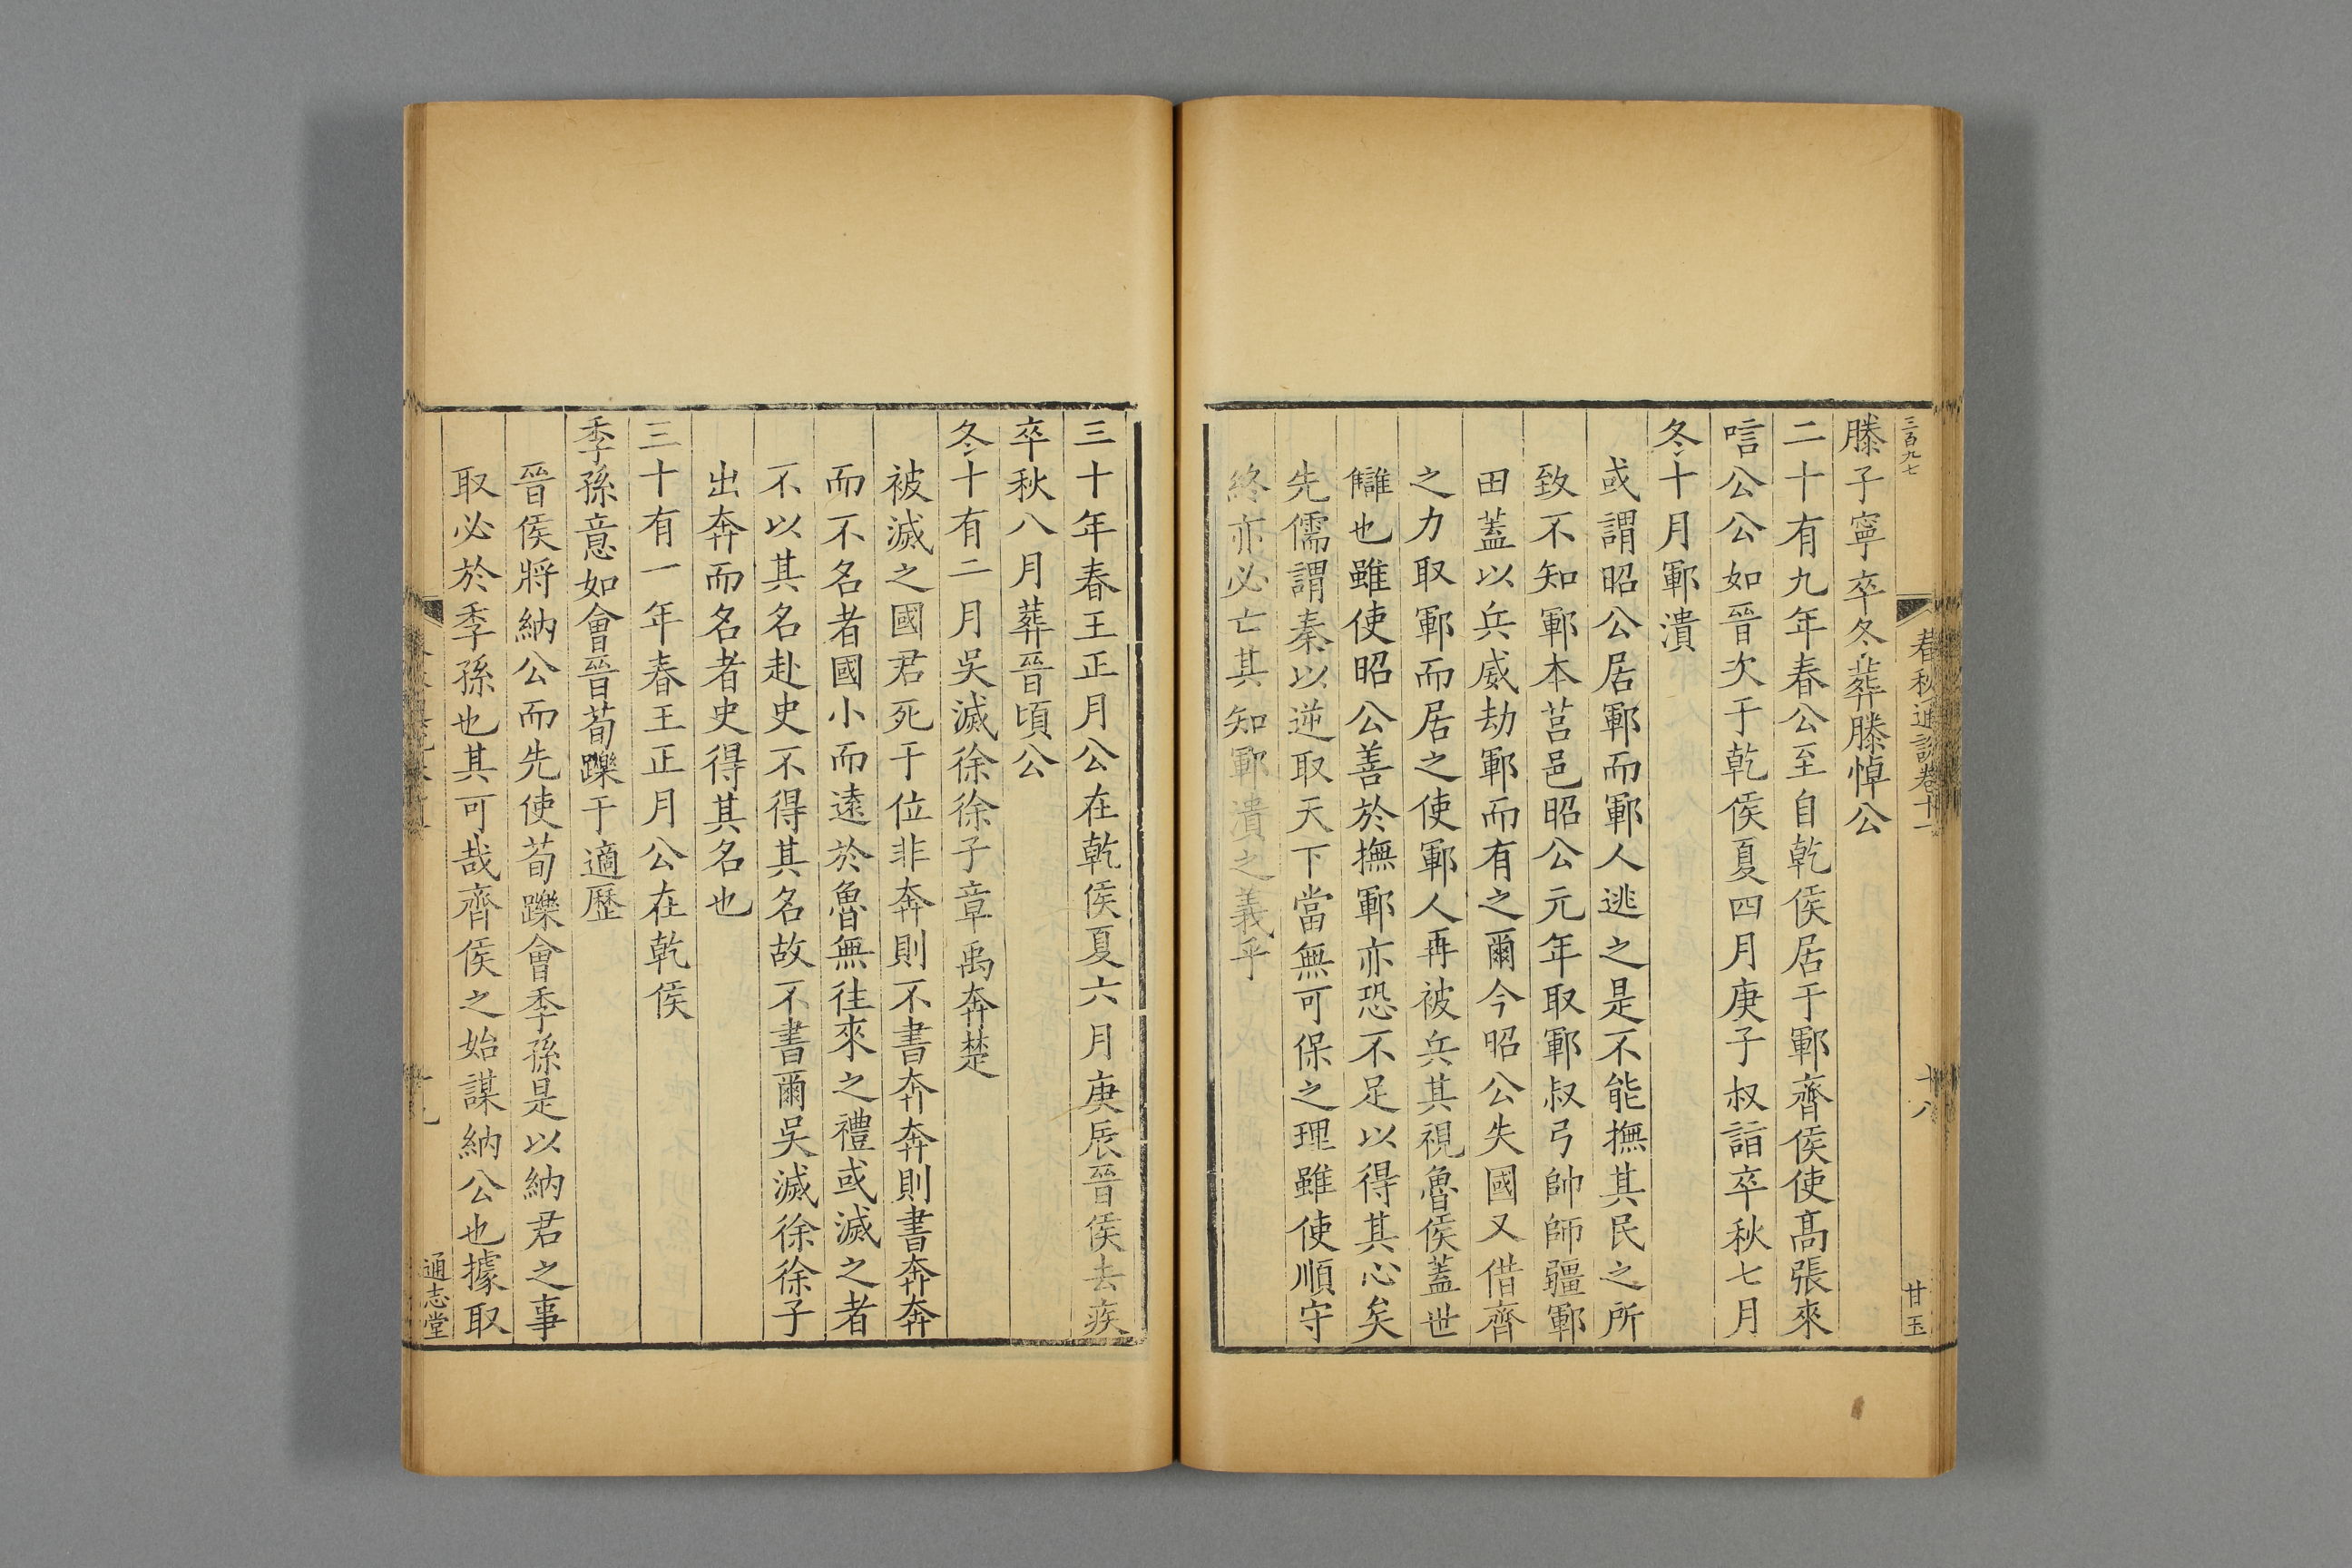 三百九七
春秋通說卷十一
十八
甘玉
滕子寧卒冬葬滕悼公
二十有九年春公至自乾侯居于鄆齊侯使高張來
唁公公如晉次于乾侯夏四月庚子叔詣卒秋七月
冬十月鄆潰
或謂昭公居鄆而鄆人逃之是不能撫其民之所
致不知鄆本莒邑昭公元年取鄆叔弓帥師疆鄆
田蓋以兵威劫鄆而有之爾今昭公失國又借齊
之力取鄆而居之使鄆人再被兵其視魯侯蓋世
讎也雖使昭公善於撫鄆亦恐不足以得其心矣
先儒謂秦以逆取天下當無可保之理雖使順守
終亦必亡其知鄆潰之義乎
三十年春王正月公在乾侯夏六月庚辰晉侯去疾
卒秋八月葬晉頃公
冬十有二月吳滅徐徐子章禹奔楚
被滅之國君死于位非奔則不書奔奔則書奔奔
而不名者國小而遠於魯無往來之禮或滅之者
不以其名赴史不得其名故不書爾吳滅徐徐子
出奔而名者史得其名也
三十有一年春王正月公在乾侯
季孫意如會晉荀躒于適歷
晉侯將納公而先使荀躒會季孫是以納君之事
取必於季孫也其可哉齊侯之始謀納公也據取
通志堂